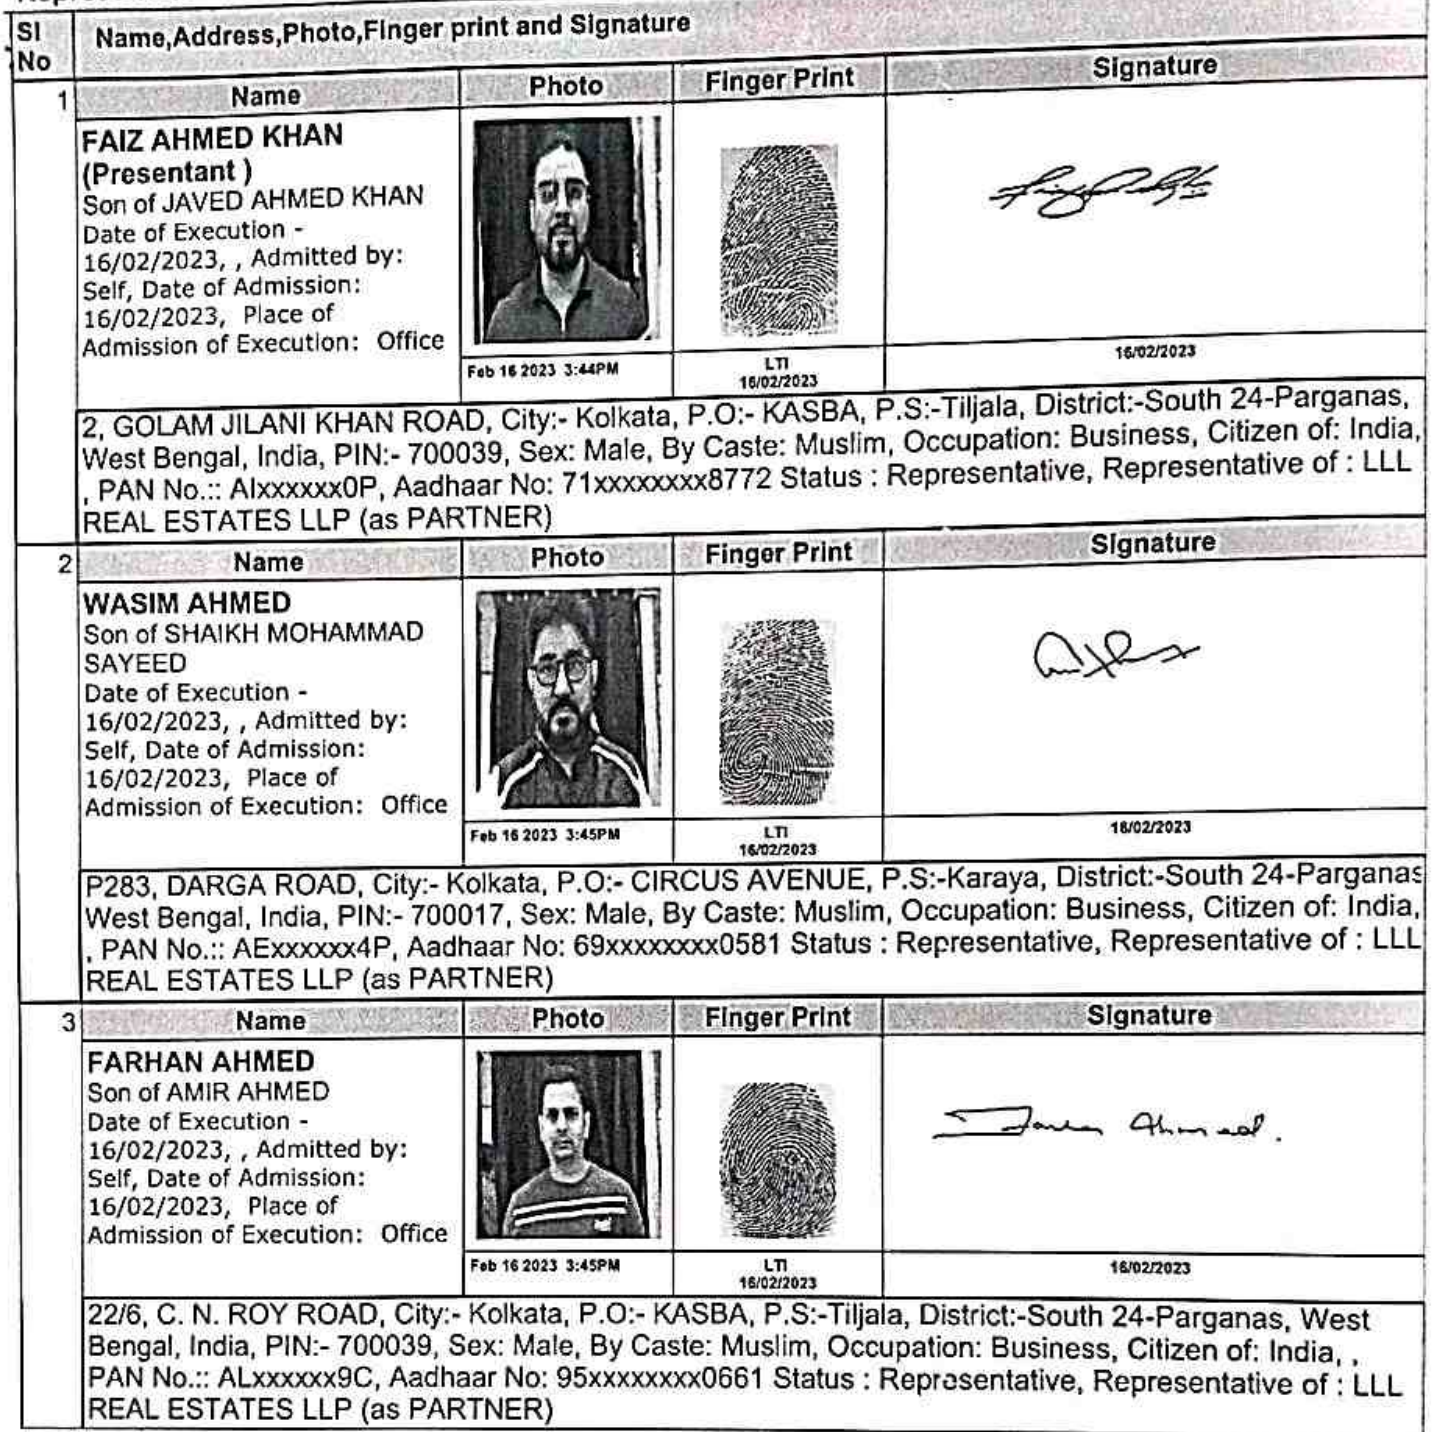 Sl No
Name,Address,Photo,Finger print and Signature
1
Name
Photo
Finger Print
Signature
FAIZ AHMED KHAN
(Presentant )
Son of JAVED AHMED KHAN
Date of Execution -
16/02/2023, , Admitted by:
Self, Date of Admission:
16/02/2023, Place of
Admission of Execution: Office
Feb 16 2023 3:44PM
LTI
16/02/2023
16/02/2023
2, GOLAM JILANI KHAN ROAD, City:- Kolkata, P.O:- KASBA, P.S:-Tiljala, District:-South 24-Parganas,
West Bengal, India, PIN:- 700039, Sex: Male, By Caste: Muslim, Occupation: Business, Citizen of: India,
, PAN No.:: AIxxxxxx0P, Aadhaar No: 71xxxxxxxx8772 Status : Representative, Representative of : LLL
REAL ESTATES LLP (as PARTNER)
2
Name
Photo
Finger Print
Signature
WASIM AHMED
Son of SHAIKH MOHAMMAD
SAYEED
Date of Execution -
16/02/2023, , Admitted by:
Self, Date of Admission:
16/02/2023, Place of
Admission of Execution: Office
Feb 16 2023 3:45PM
LTI
16/02/2023
16/02/2023
P283, DARGA ROAD, City:- Kolkata, P.O:- CIRCUS AVENUE, P.S:-Karaya, District:-South 24-Parganas
West Bengal, India, PIN:- 700017, Sex: Male, By Caste: Muslim, Occupation: Business, Citizen of: India,
, PAN No.:: AExxxxxx4P, Aadhaar No: 69xxxxxxxx0581 Status : Representative, Representative of : LLL
REAL ESTATES LLP (as PARTNER)
3
Name
Photo
Finger Print
Signature
FARHAN AHMED
Son of AMIR AHMED
Date of Execution -
16/02/2023, , Admitted by:
Self, Date of Admission:
16/02/2023, Place of
Admission of Execution: Office
Farhan Ahmed.
Feb 16 2023 3:45PM
LTI
16/02/2023
16/02/2023
22/6, C. N. ROY ROAD, City:- Kolkata, P.O:- KASBA, P.S:-Tiljala, District:-South 24-Parganas, West
Bengal, India, PIN:- 700039, Sex: Male, By Caste: Muslim, Occupation: Business, Citizen of: India, ,
PAN No.:: ALxxxxxx9C, Aadhaar No: 95xxxxxxxx0661 Status : Representative, Representative of : LLL
REAL ESTATES LLP (as PARTNER)